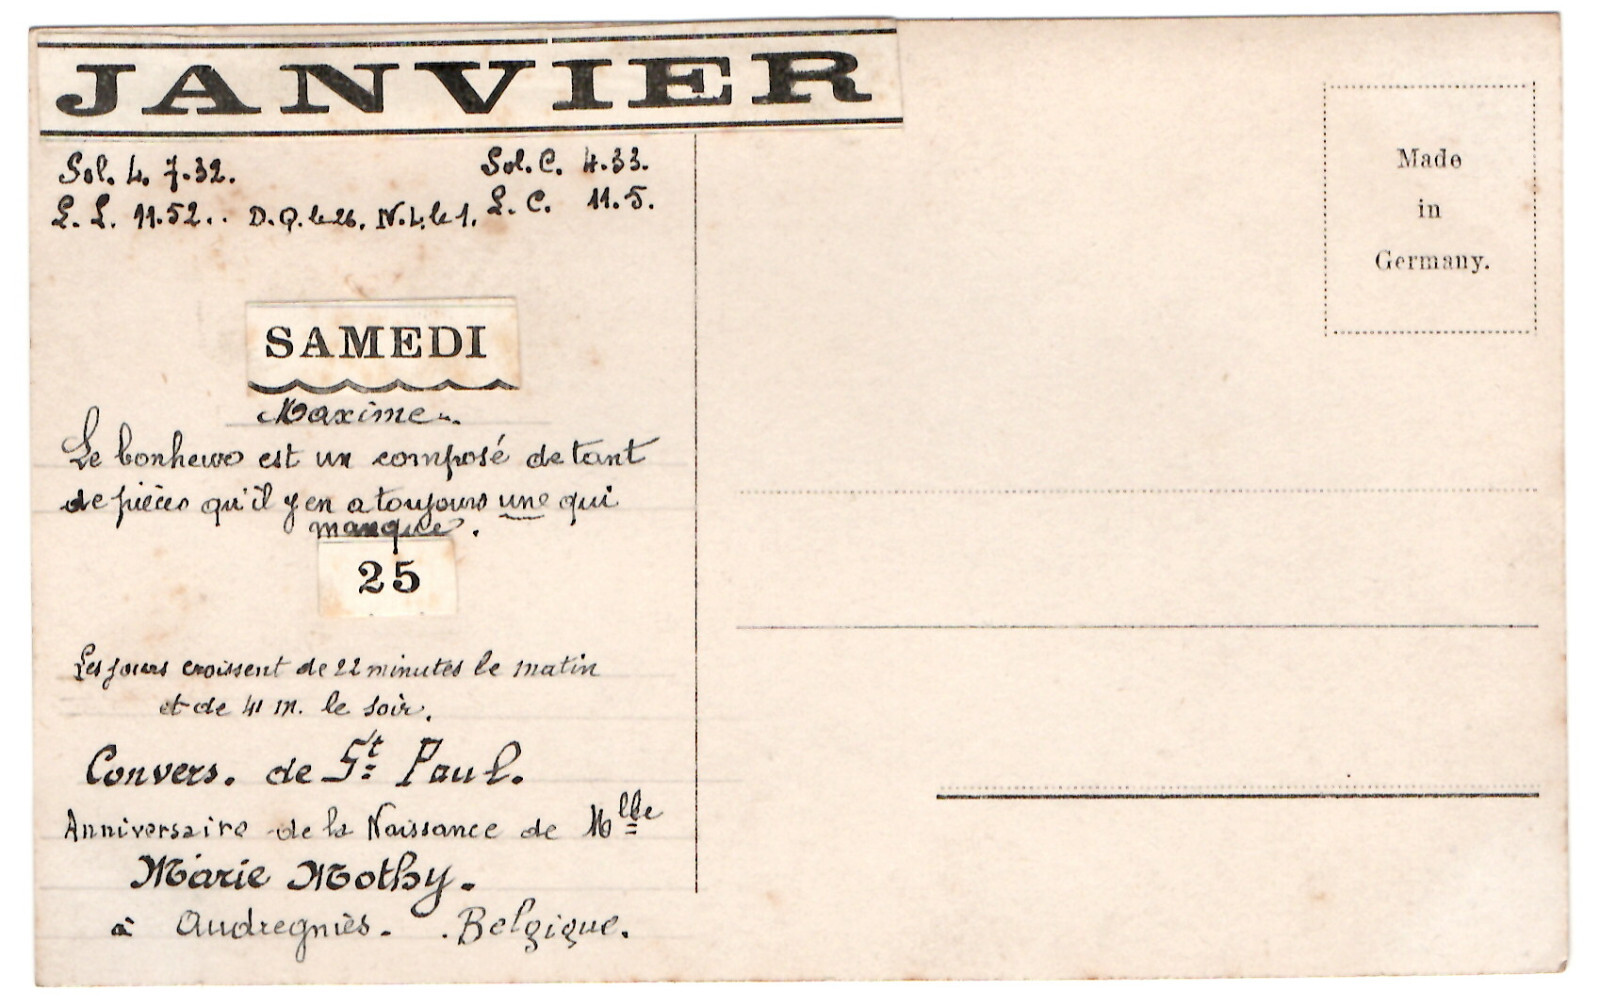 JANVIER
Sol. L. 7.32. Sol. C. 4.33.
L. L. 11.52.. D.Q. le 26. N.L. le 1. L. C. 11.5.
Made
in
Germany.
SAMEDI
Maxime.
Le bonheur est un composé de tant
de pièces qu'il y en a toujours une qui
manque.
25
Les jours croissent de 22 minutes le matin
et de 41 m. le soir.
Convers. de St Paul.
Anniversaire de la Naissance de Mlle
Marie Mothy.
à Audregnies. Belgique.